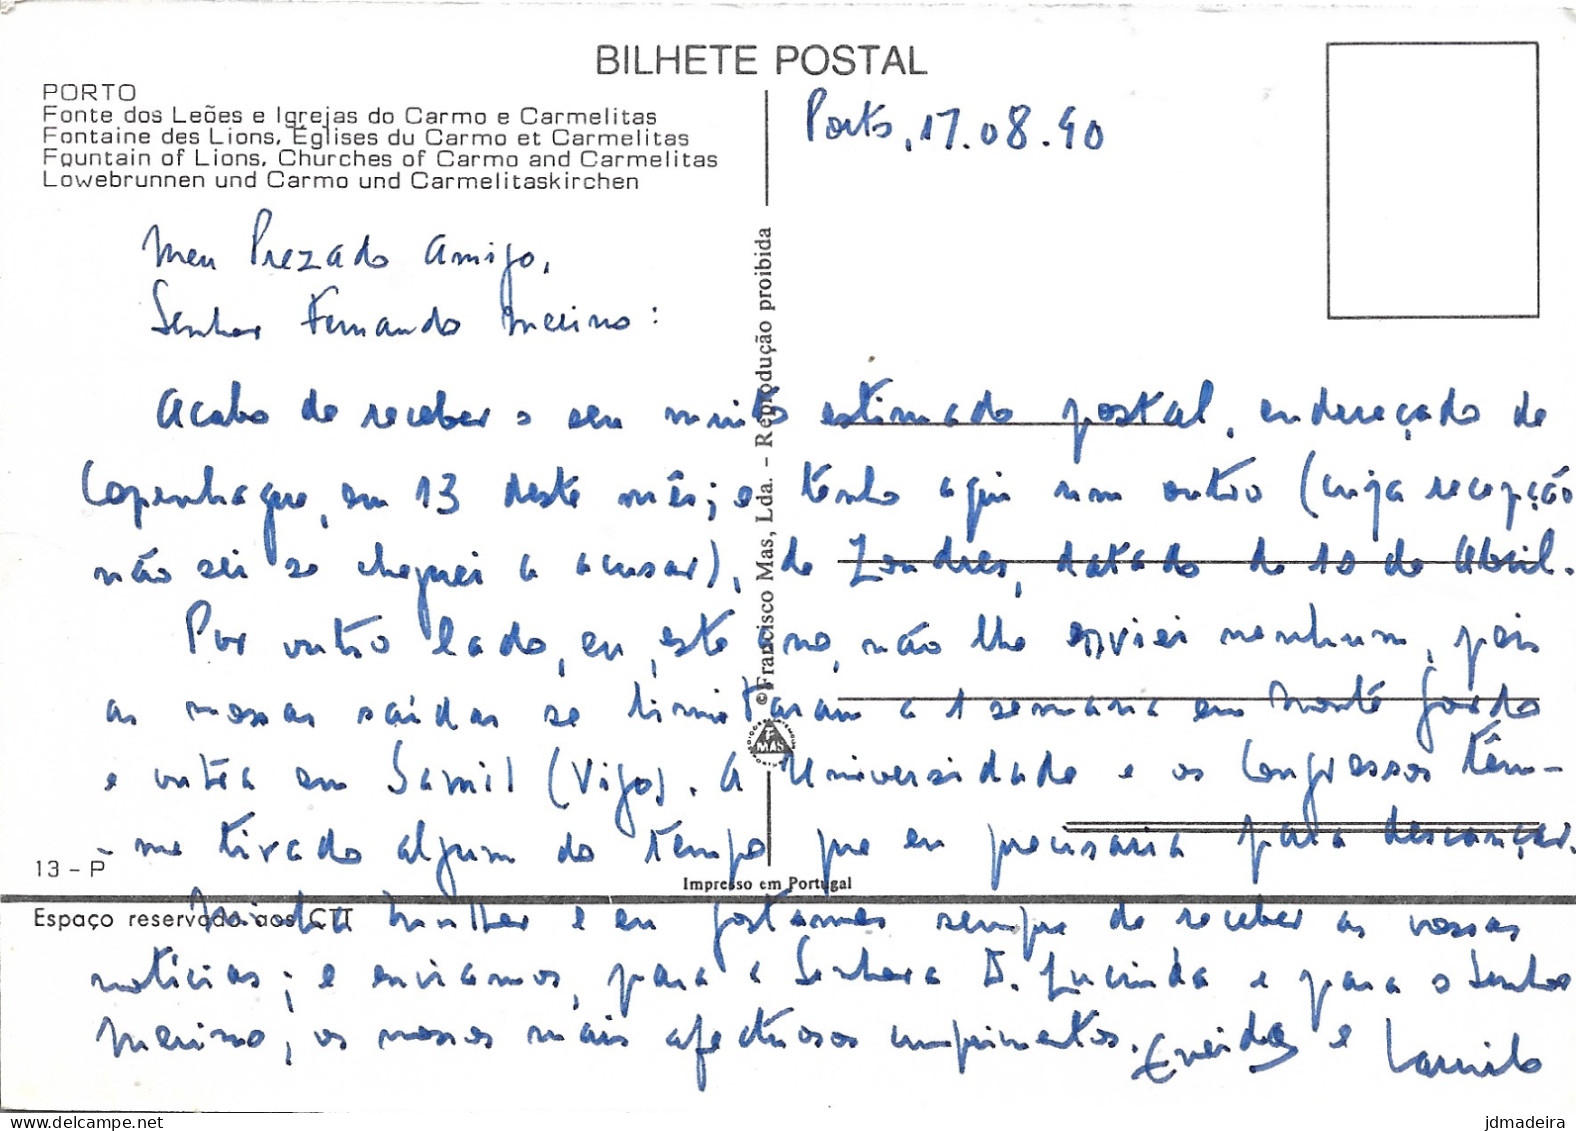 BILHETE POSTAL
PORTO
Fonte dos Leões e Igrejas do Carmo e Carmelitas
Fontaine des Lions, Églises du Carmo et Carmelitas
Fountain of Lions, Churches of Carmo and Carmelitas
Lowebrunnen und Carmo und Carmelitaskirchen
Porto, 17.08.90
Meu Prezado Amigo,
Senhor Fernando Merino:
Acabo de receber o seu muito estimado postal, endereçado de
Copenhague, em 13 deste mês; e tenho aqui num outro (cuja recepção
não sei se cheguei a acusar), de Londres, datado de 10 de Abril.
Por outro lado, eu, este ano, não lhe enviei nenhum, pois
as nossas saídas se limitaram a 1 semana em Monte Gordo
e outra em Samil (Vigo). A Universidade e os Congressos têm-
-me tirado algum do tempo que eu precisaria para descançar.
Minha Mulher e eu gostamos sempre de receber as vossas
notícias; e enviamos, para a Senhora D. Lucinda e para o Senhor
Merino, os nossos mais afectuosos cumprimentos. Eneida e Camilo
©Francisco Mas, Lda. – Reprodução proibida
F
MAS
13 – P
Impresso em Portugal
Espaço reservado aos CTT
jdmadeira